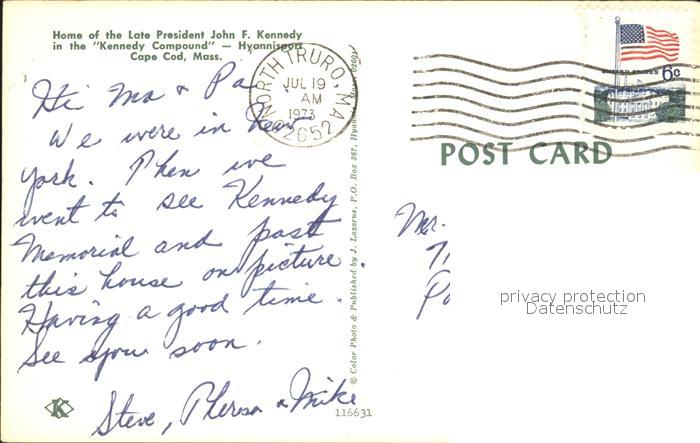 Home of the Late President John F. Kennedy
in the "Kennedy Compound" — Hyannisport
Cape Cod, Mass.
Hi Ma & Pa
We were in New
York. Then we
went to see Kennedy
Memorial and past
this house on picture.
Having a good time.
See you soon.
Steve, Theresa & Mike
K
116631
© Color Photo & Published by J. Lazarus, P.O. Box 367, Hyannis, Mass. 02601
NORTH TRURO, MA
JUL 19
AM
1973
02652
UNITED STATES 6c
POST CARD
Mr.
privacy protection
Datenschutz